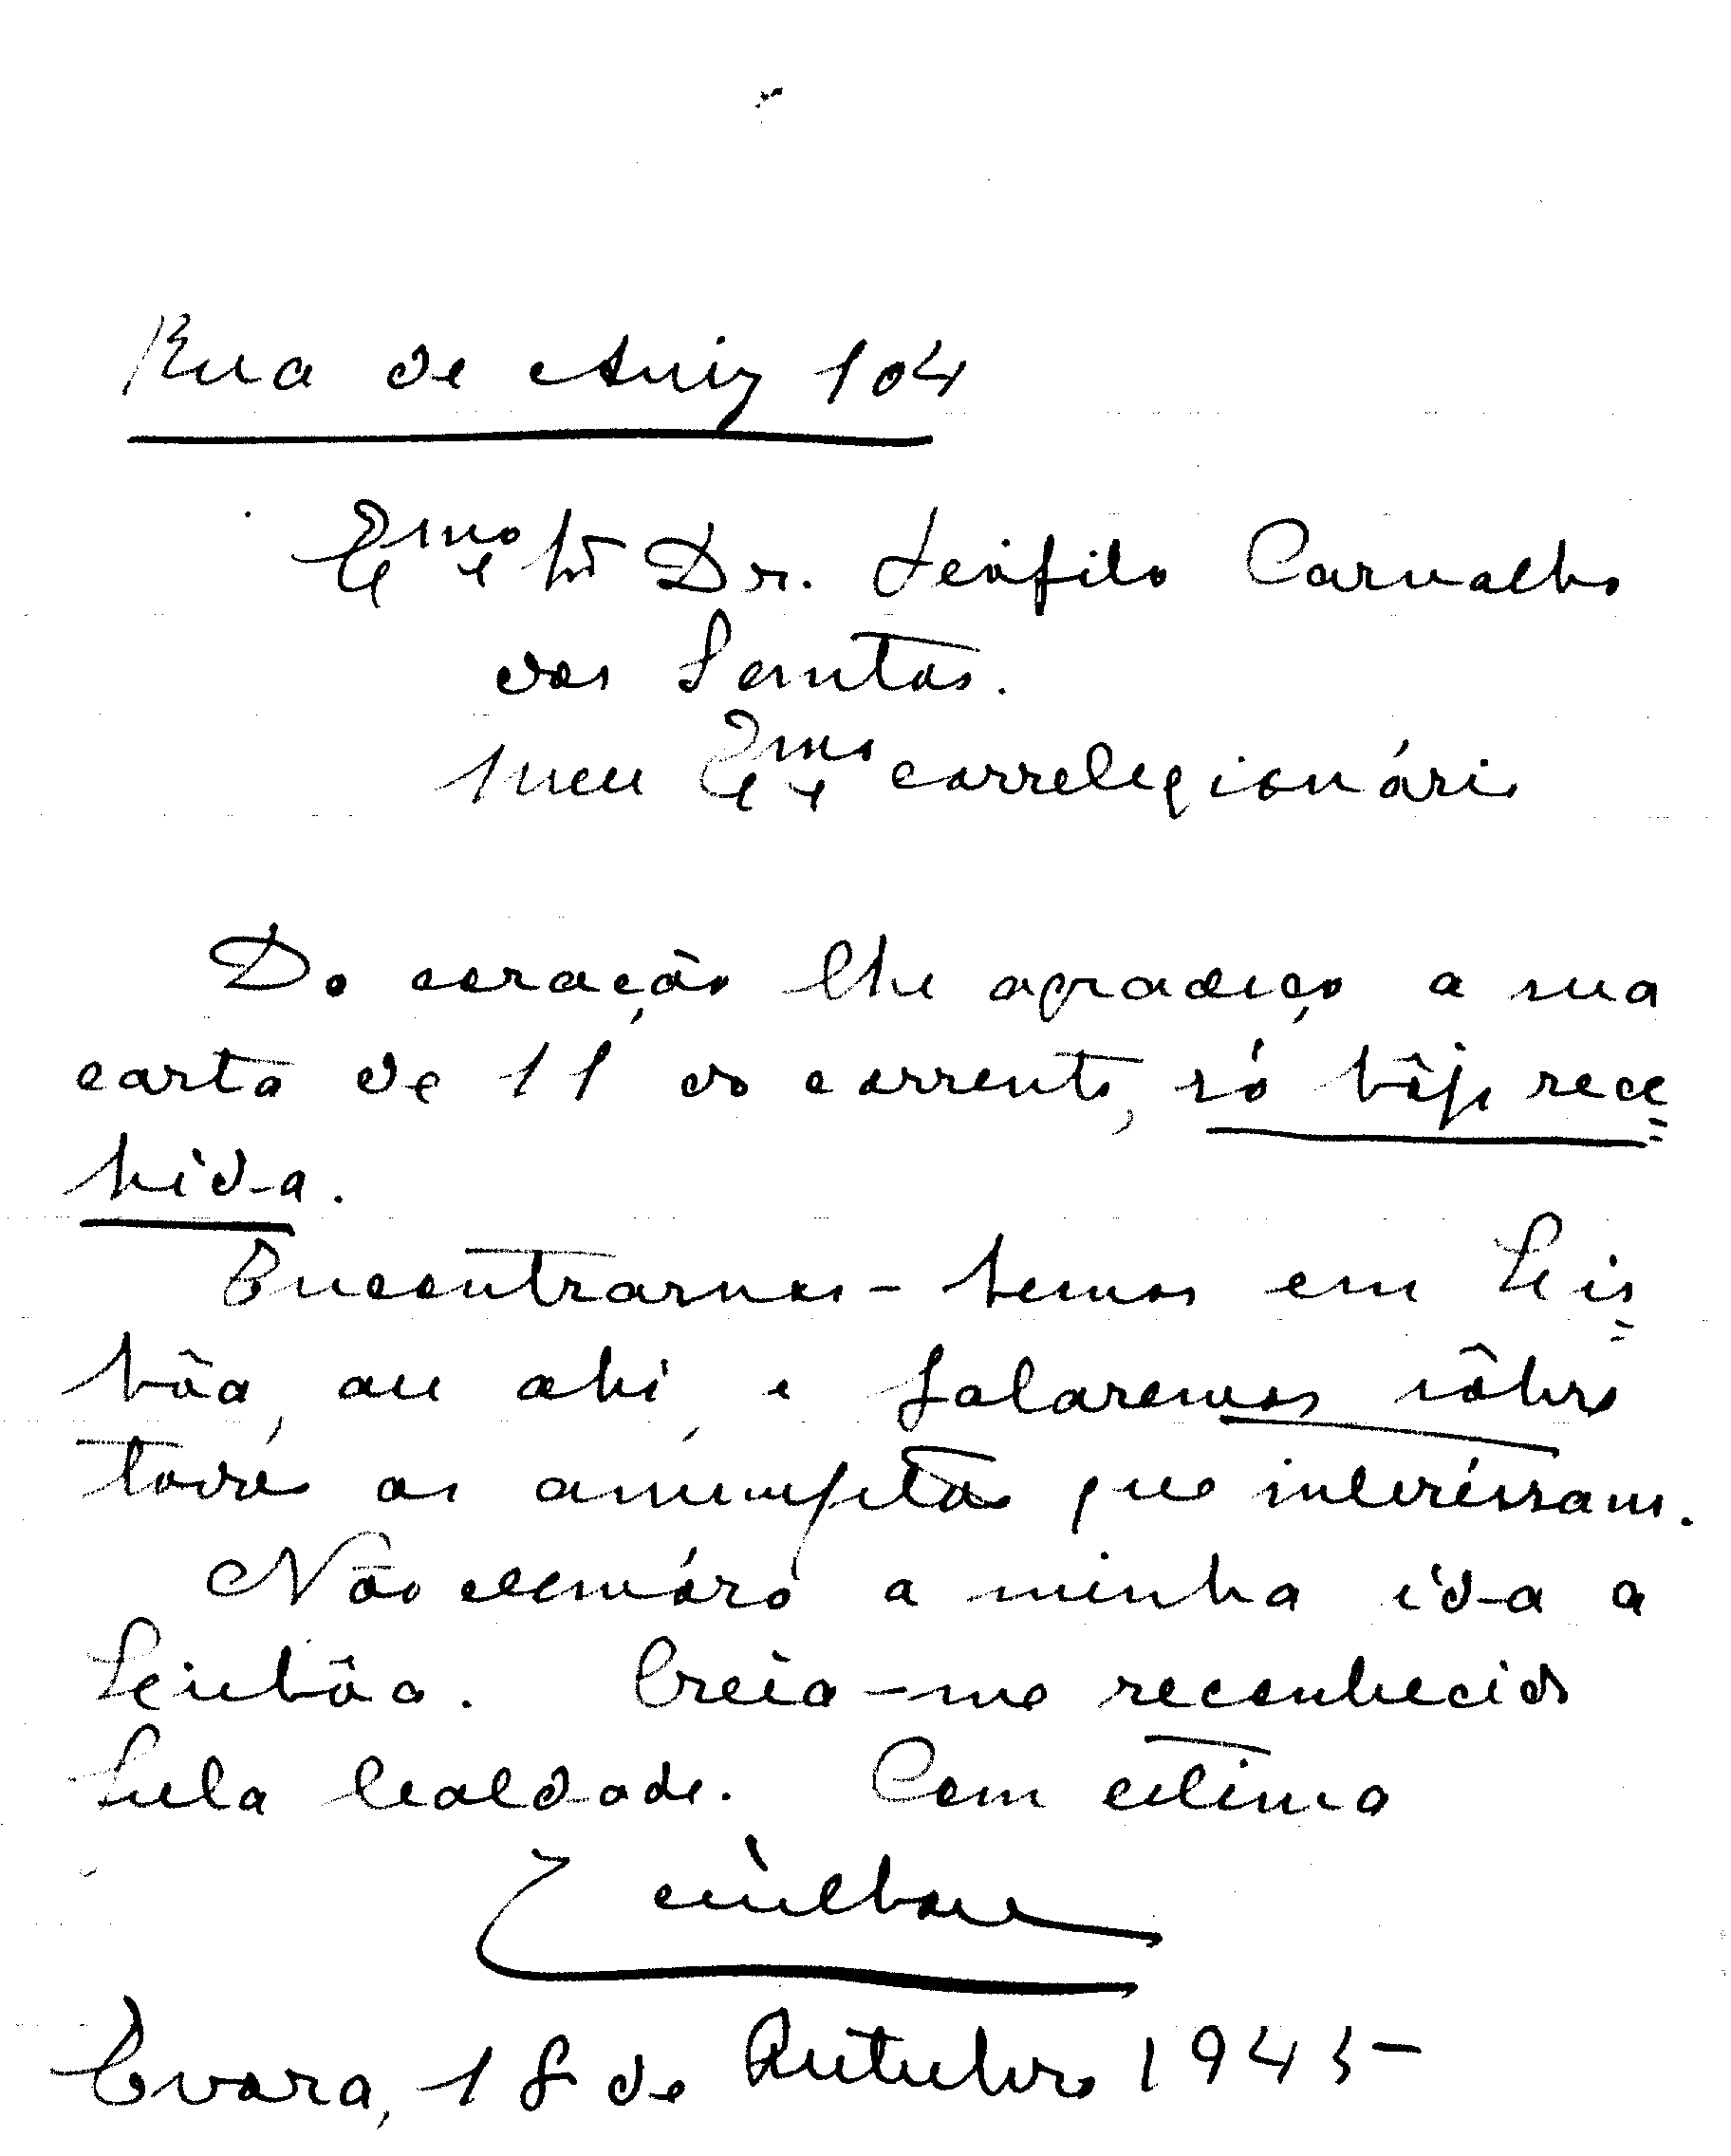 Rua de Aviz 104
Exmo Snr Dr. Teófilo Carvalho
dos Santos.
Meu Exmo correlegionário
Do coração lhe agradeço a sua
carta de 11 do corrente, só hôje rece=
bida.
Encontrarnos-hemos em Lis=
bôa, ou ahi, e falaremos sôbre
todos os assumptos que interéssam.
Não demóro a minha ida a
Lisbôa. Creia-me reconhecido
pela lealdade. Com estima
Evora, 18 de Outubro 1945